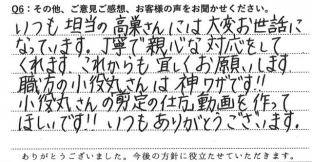 Q6：その他、ご意見ご感想、お客様の声をお聞かせください。
いつも担当の高巣さんには大変お世話に
なっています。丁寧で親心な対応をして
くれます。これからも宜しくお願いします
職方の小役丸さんは神ワザです!!
小役丸さんの剪定の仕方、動画を作って
ほしいです!! いつもありがとうございます。
ありがとうございました。今後の方針に役立たせていただきます。